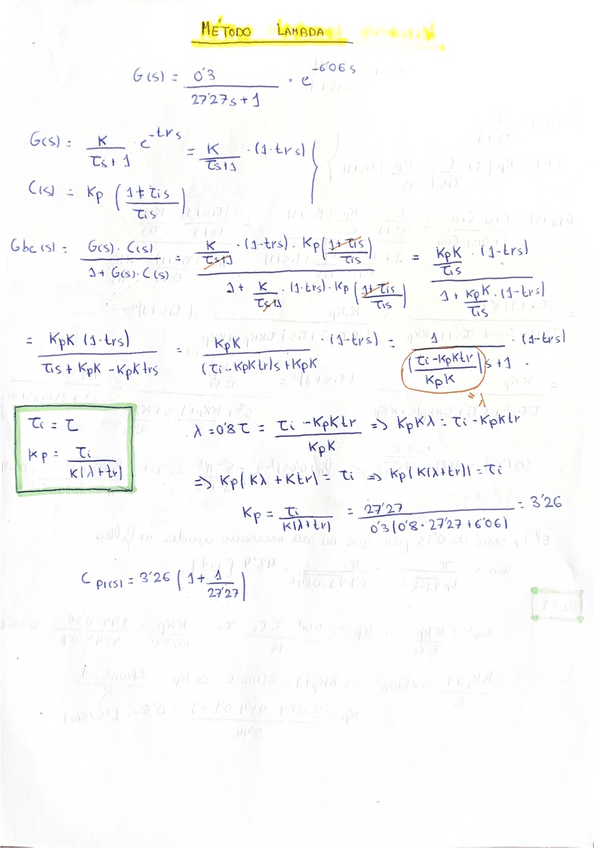 MÉTODO LAMADA
G(s) = 0'3 / (27'27s + 1) · e^(-6'06s)
G(s) = K / (τs+1) · e^(-trs) = K / (τs+1) · (1-trs)
C(s) = Kp ( (1+τis) / τis )
Gbc(s) = G(s)·C(s) / (1 + G(s)·C(s)) = [ K/(τs+1) · (1-trs) · Kp ( (1+τis) / τis ) ] / [ 1 + K/(τs+1) · (1-trs) · Kp ( (1+τis) / τis ) ] = [ KpK/τis · (1-trs) ] / [ 1 + KpK/τis · (1-trs) ]
= KpK (1-trs) / (τis + KpK - KpKtrs) = KpK / ((τi - KpKtr)s + KpK) · (1-trs) = 1 / ( ( (τi - KpKtr) / KpK ) s + 1 ) · (1-trs)
" λ
τi = τ
Kp = τi / K(λ+tr)
λ = 0'8τ = (τi - KpKtr) / KpK => KpKλ = τi - KpKtr
=> Kp(Kλ + Ktr) = τi => Kp(K(λ+tr)) = τi
Kp = τi / K(λ+tr) = 27'27 / 0'3(0'8·27'27+6'06) = 3'26
C PI(s) = 3'26 ( 1 + 1/27'27 )